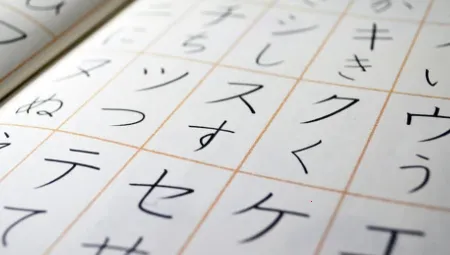 チ シ キ
ち し き い
ヌ ツ ス ク ウ
ぬ つ す く う
テ セ ケ エ
て せ